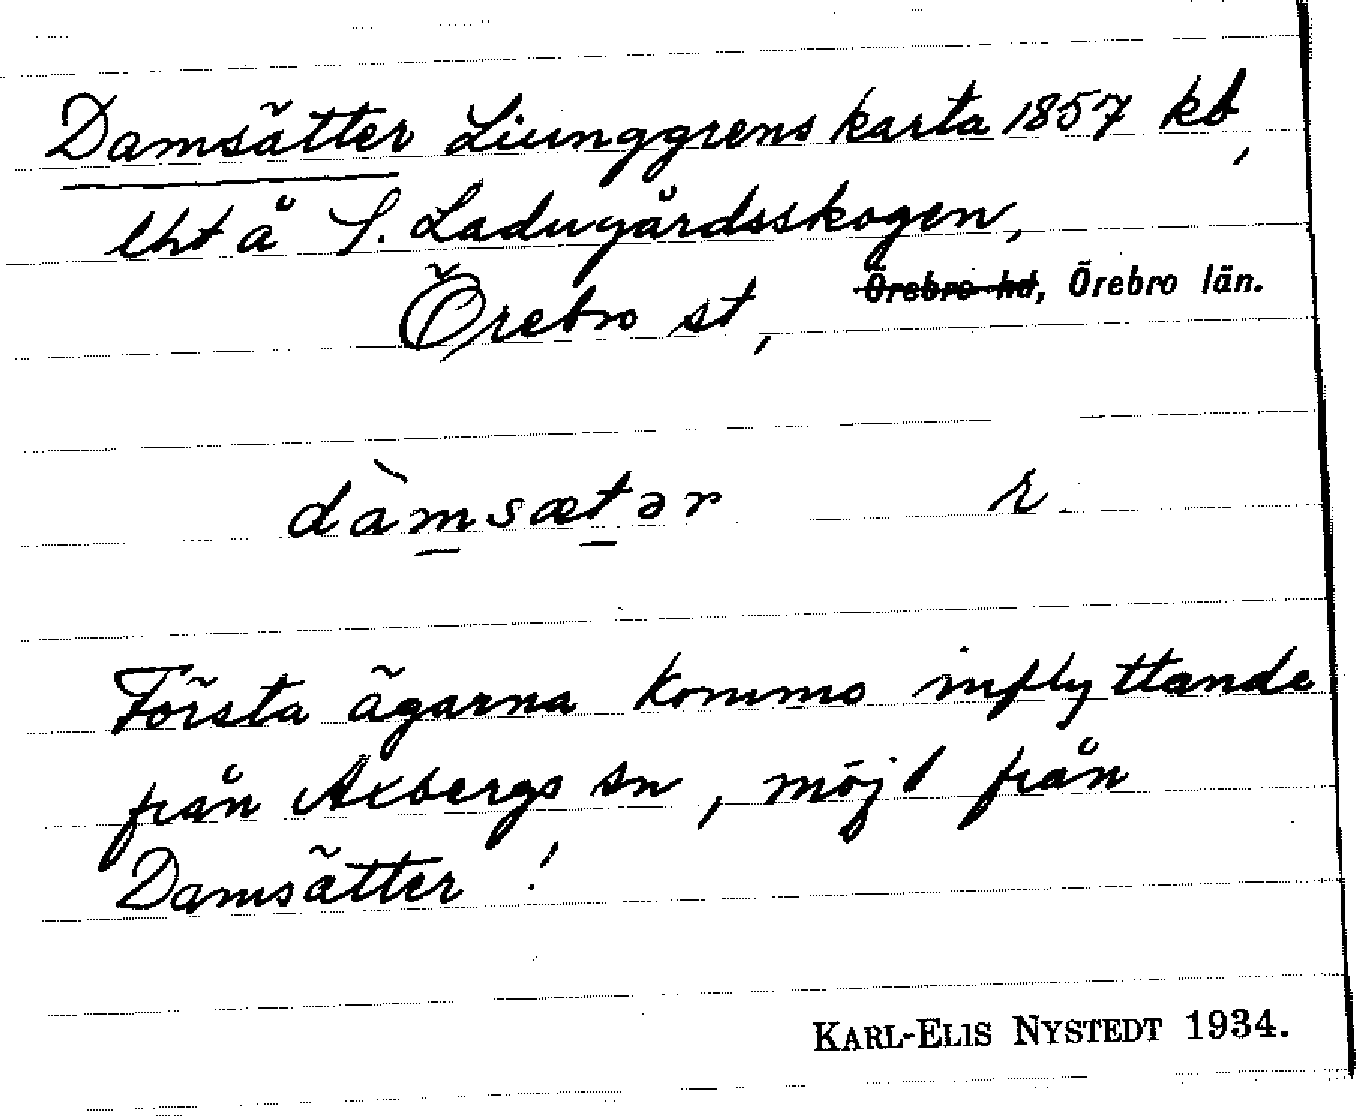 Damsätter Liunggrens karta 1857 kb,
lht å S. Ladugårdsskogen,
Örebro st, Örebro hd, Örebro län.
dàmsætər r.
Första ägarna kommo inflyttande
från Axbergs sn, möjl från
Damsätter!
KARL-ELIS NYSTEDT 1934.